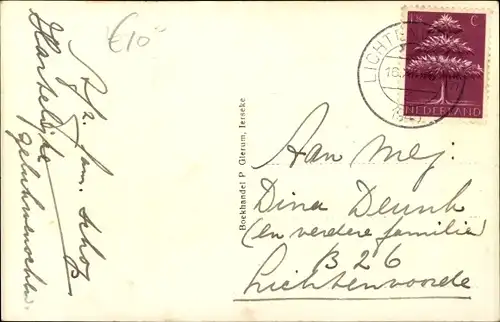 €10-
Afz. fam. Schot
Hartelijke
gelukwenschen.
Boekhandel P. Glerum, Ierseke
LICHTENV
1½ C
NEDERLAND
Aan Mej:
Dina Deunk
(en verdere familie
B 26
Lichtenvoorde